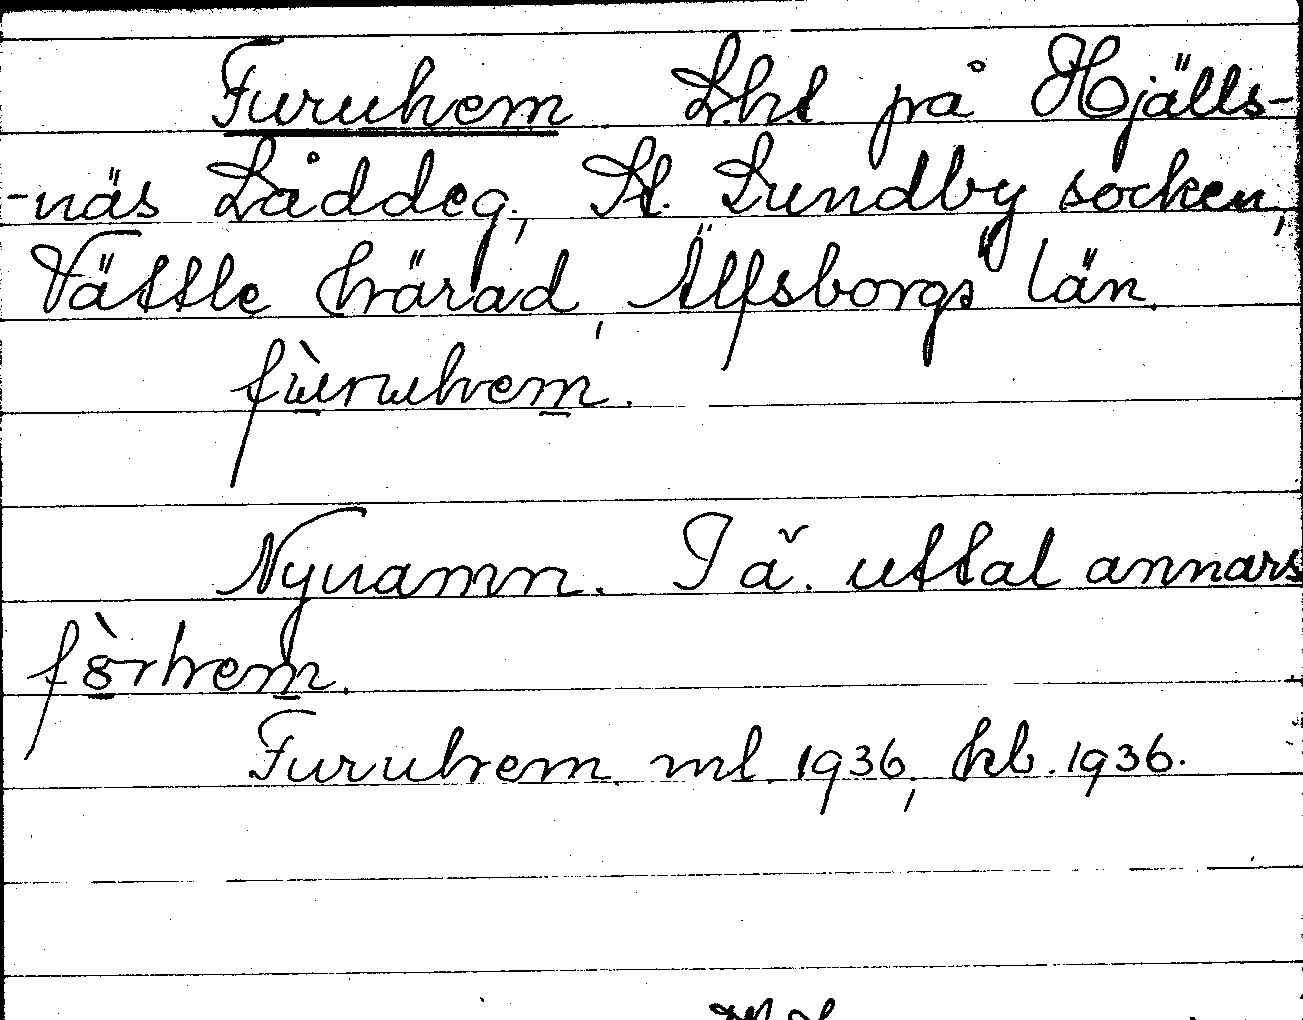 Furuhem Lht på Hjälls-
-näs Låddeg, St. Lundby socken,
Vättle härad, Älfsborgs län.
fùruhem.
Nynamn. I ä. uttal annars
fòrhem.
Furuhem ml. 1936, kb. 1936.